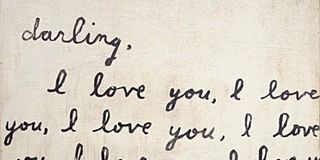 darling,
I love you, I love
you, I love you, I love